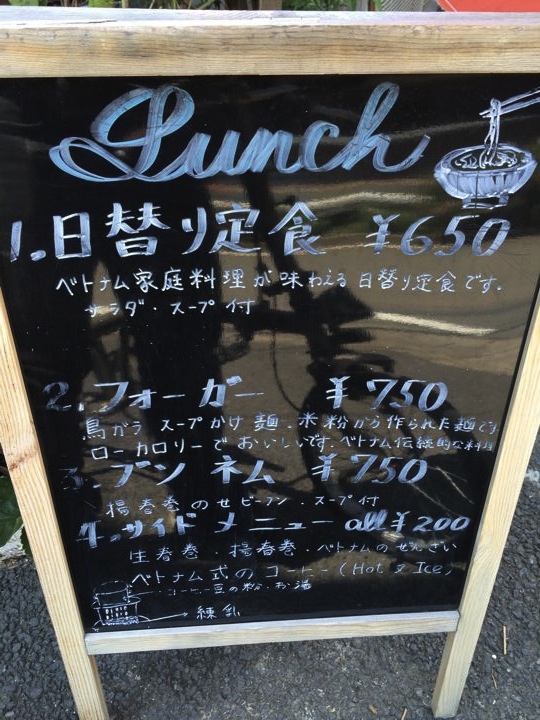 Lunch
1.日替り定食 ¥650
ベトナム家庭料理が味わえる日替り定食です.
サラダ・スープ付
2.フォーガー ¥750
鳥がらスープかけ麺.米粉から作られた麺です
ローカロリーでおいしいです.ベトナム伝統的な料理
3.ブンネム ¥750
揚春巻のせビーフン・スープ付
4.サイドメニュー all ¥200
生春巻・揚春巻・ベトナムのぜんざい
ベトナム式のコーヒー(Hot ヌ Ice)
コーヒー豆の粉・お湯
練乳